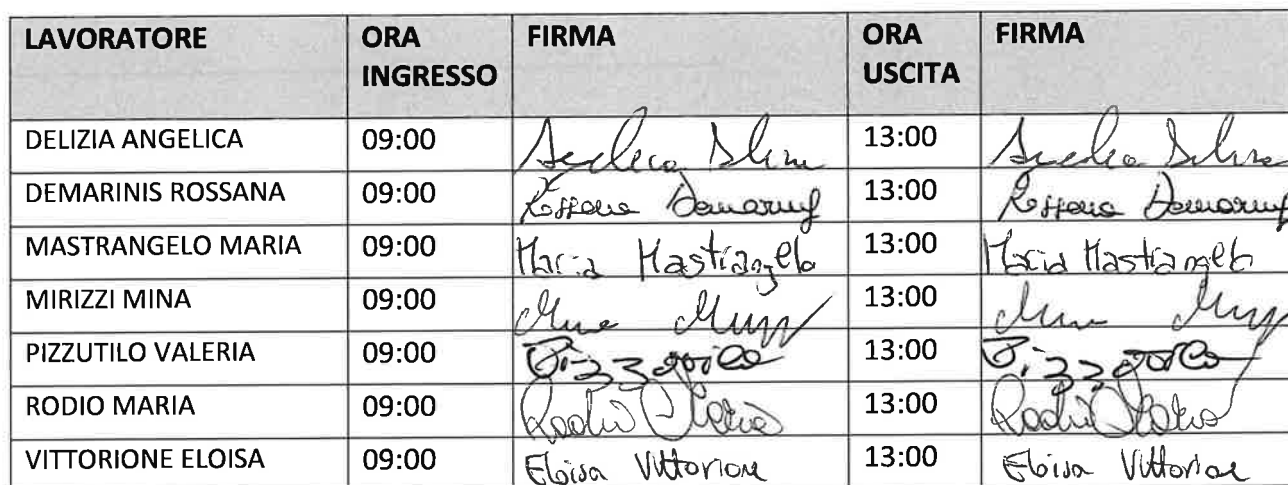 LAVORATORE ORA INGRESSO FIRMA ORA USCITA FIRMA
DELIZIA ANGELICA 09:00 Angelica 13:00 Angelica
DEMARINIS ROSSANA 09:00 Rossana Demarinis 13:00 Rossana Demarinis
MASTRANGELO MARIA 09:00 Maria Mastrangelo 13:00 Maria Mastrangelo
MIRIZZI MINA 09:00 13:00
PIZZUTILO VALERIA 09:00 13:00
RODIO MARIA 09:00 Rodio Maria 13:00 Rodio Maria
VITTORIONE ELOISA 09:00 Eloisa Vittorione 13:00 Eloisa Vittorione